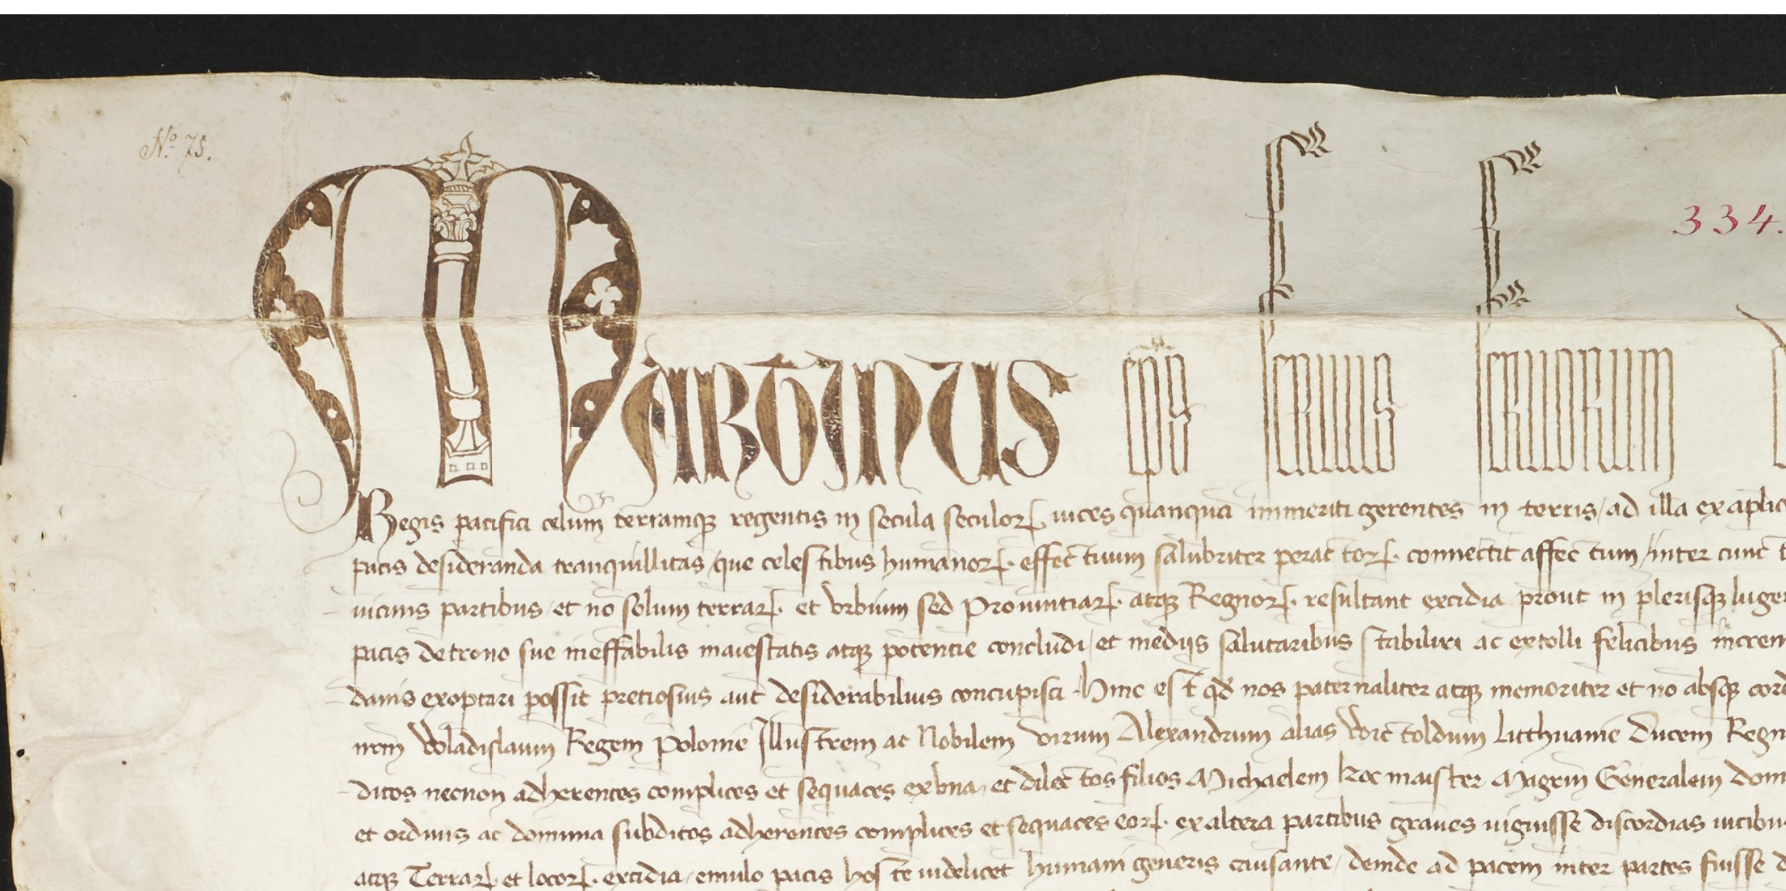 No. 75.
334.
Martinus ep̄s seruus seruorum
Regis pacifici celum terramq; regentis in secula seculoꝝ vices quanquā immeriti gerentes in terris / ad illa ex aplic
pacis desideranda tranquillitas / que celestibus humanoꝝ. effectiuum salubriter peractoꝝ. connectit affectum / inter cunct
uicinis partibus / et nō solum terraꝝ. et vrbium sed Prouintiaꝝ. atq; Regnoꝝ. resultant excidia prout in plerisq; luge
pacis de trono sue ineffabilis maiestatis atq; potencie concludi / et mediis salutaribus stabiliri ac extolli felicibus increm
danis exoptari possit preciosius aut desiderabilius concupisci. Hinc est qd̄ nos paternaliter atq; memoriter et nō absq; cord
nr̄m Wladislaum Regem Polonie Illustrem ac Nobilem virum Alexandrum alias Wictoldum Litthuanie Ducem Regn
ditos necnon adherentes complices et sequaces ex vna / et dilectos filios Michaelem koc maister Magrm̄ Generalem dom
et ordinis ac domina subditos adherentes complices et sequaces eoꝝ. ex altera partibus graues viguisse discordias
atq; Terraꝝ. et locoꝝ. excidia / emulo pacis hoste videlicet humani generis causante / deinde ad pacem inter partes fuisse d